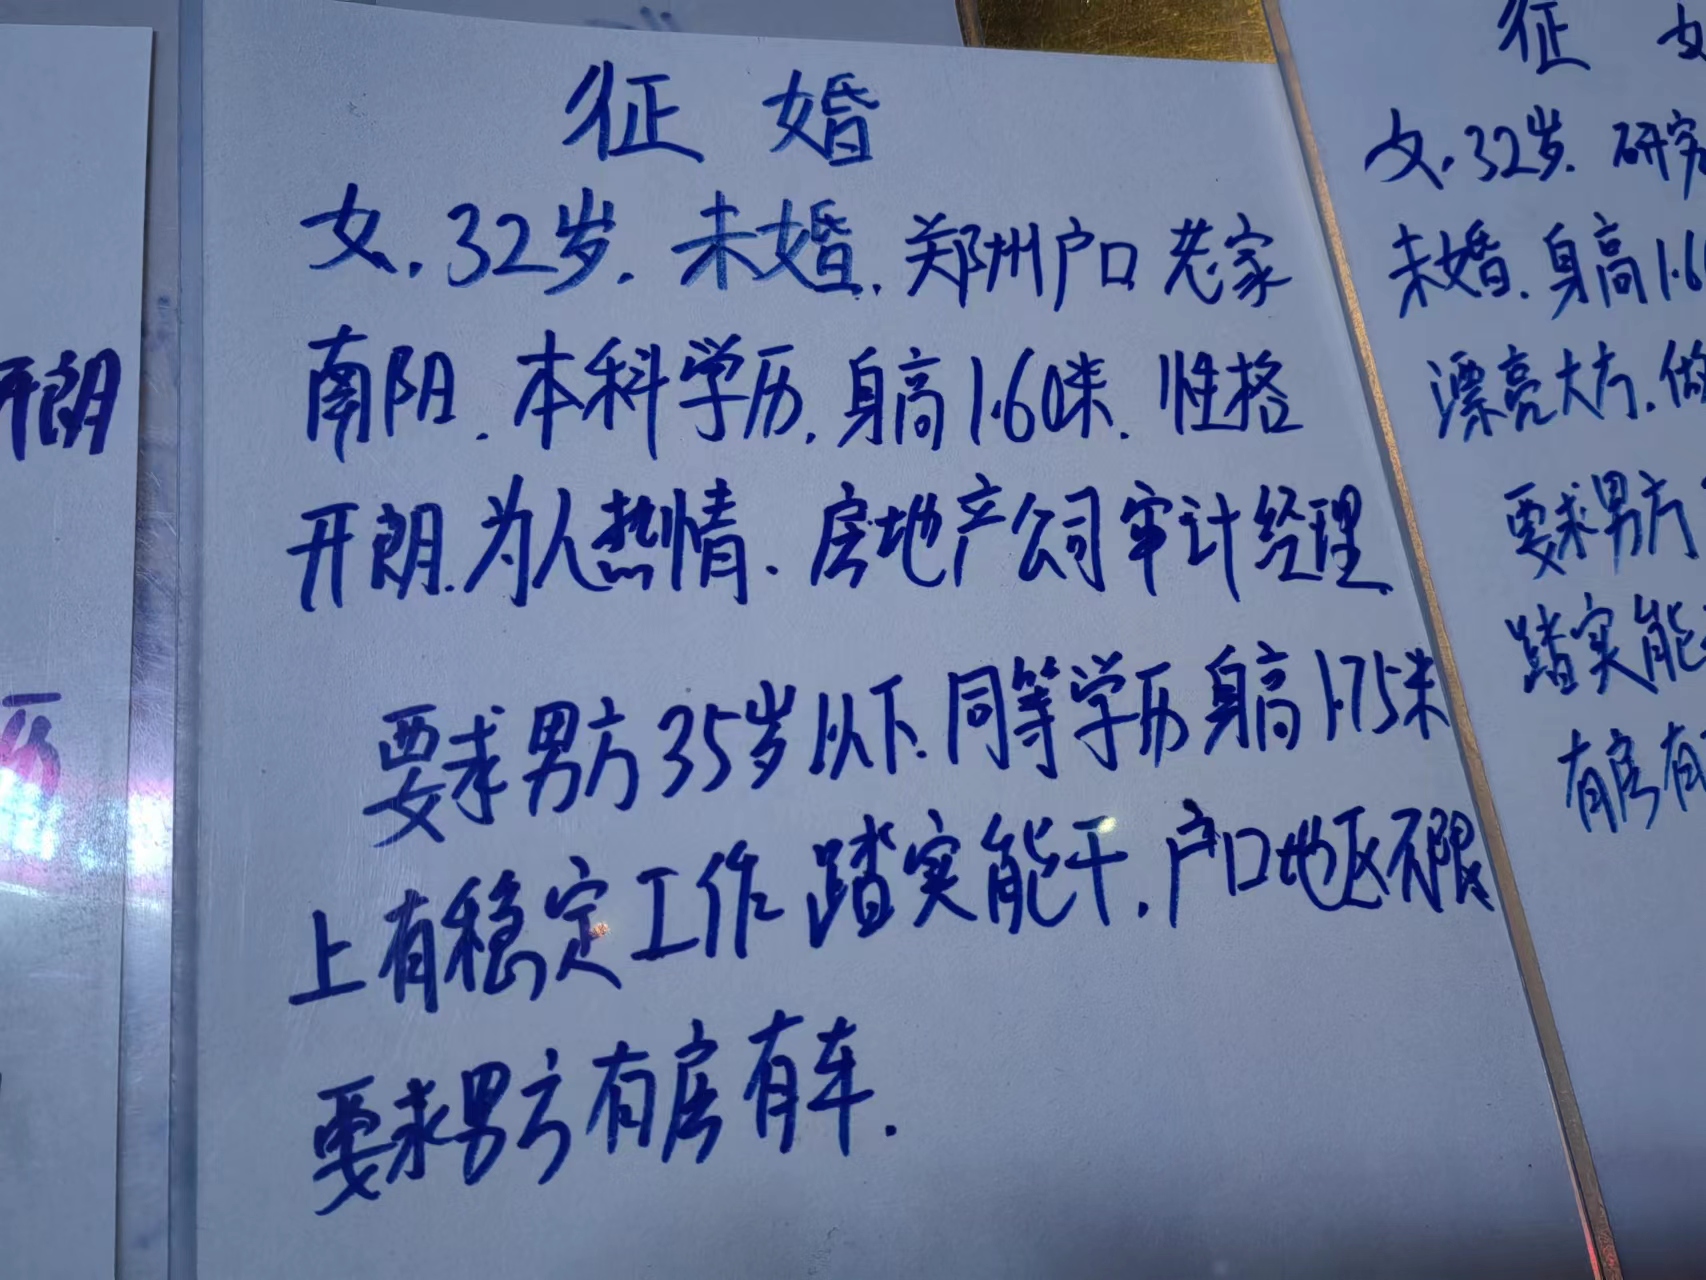 征 婚
女.32岁.未婚.郑州户口 老家
南阳.本科学历.身高1.60米.性格
开朗.为人热情.房地产公司审计经理
要求男方35岁以下.同等学历 身高1.75米
上有稳定工作 踏实能干.户口地区不限
要求男方有房有车.
开朗
历
征
女.32岁.研究
未婚.身高1.6
漂亮大方.做
要求男方
踏实能
有房有